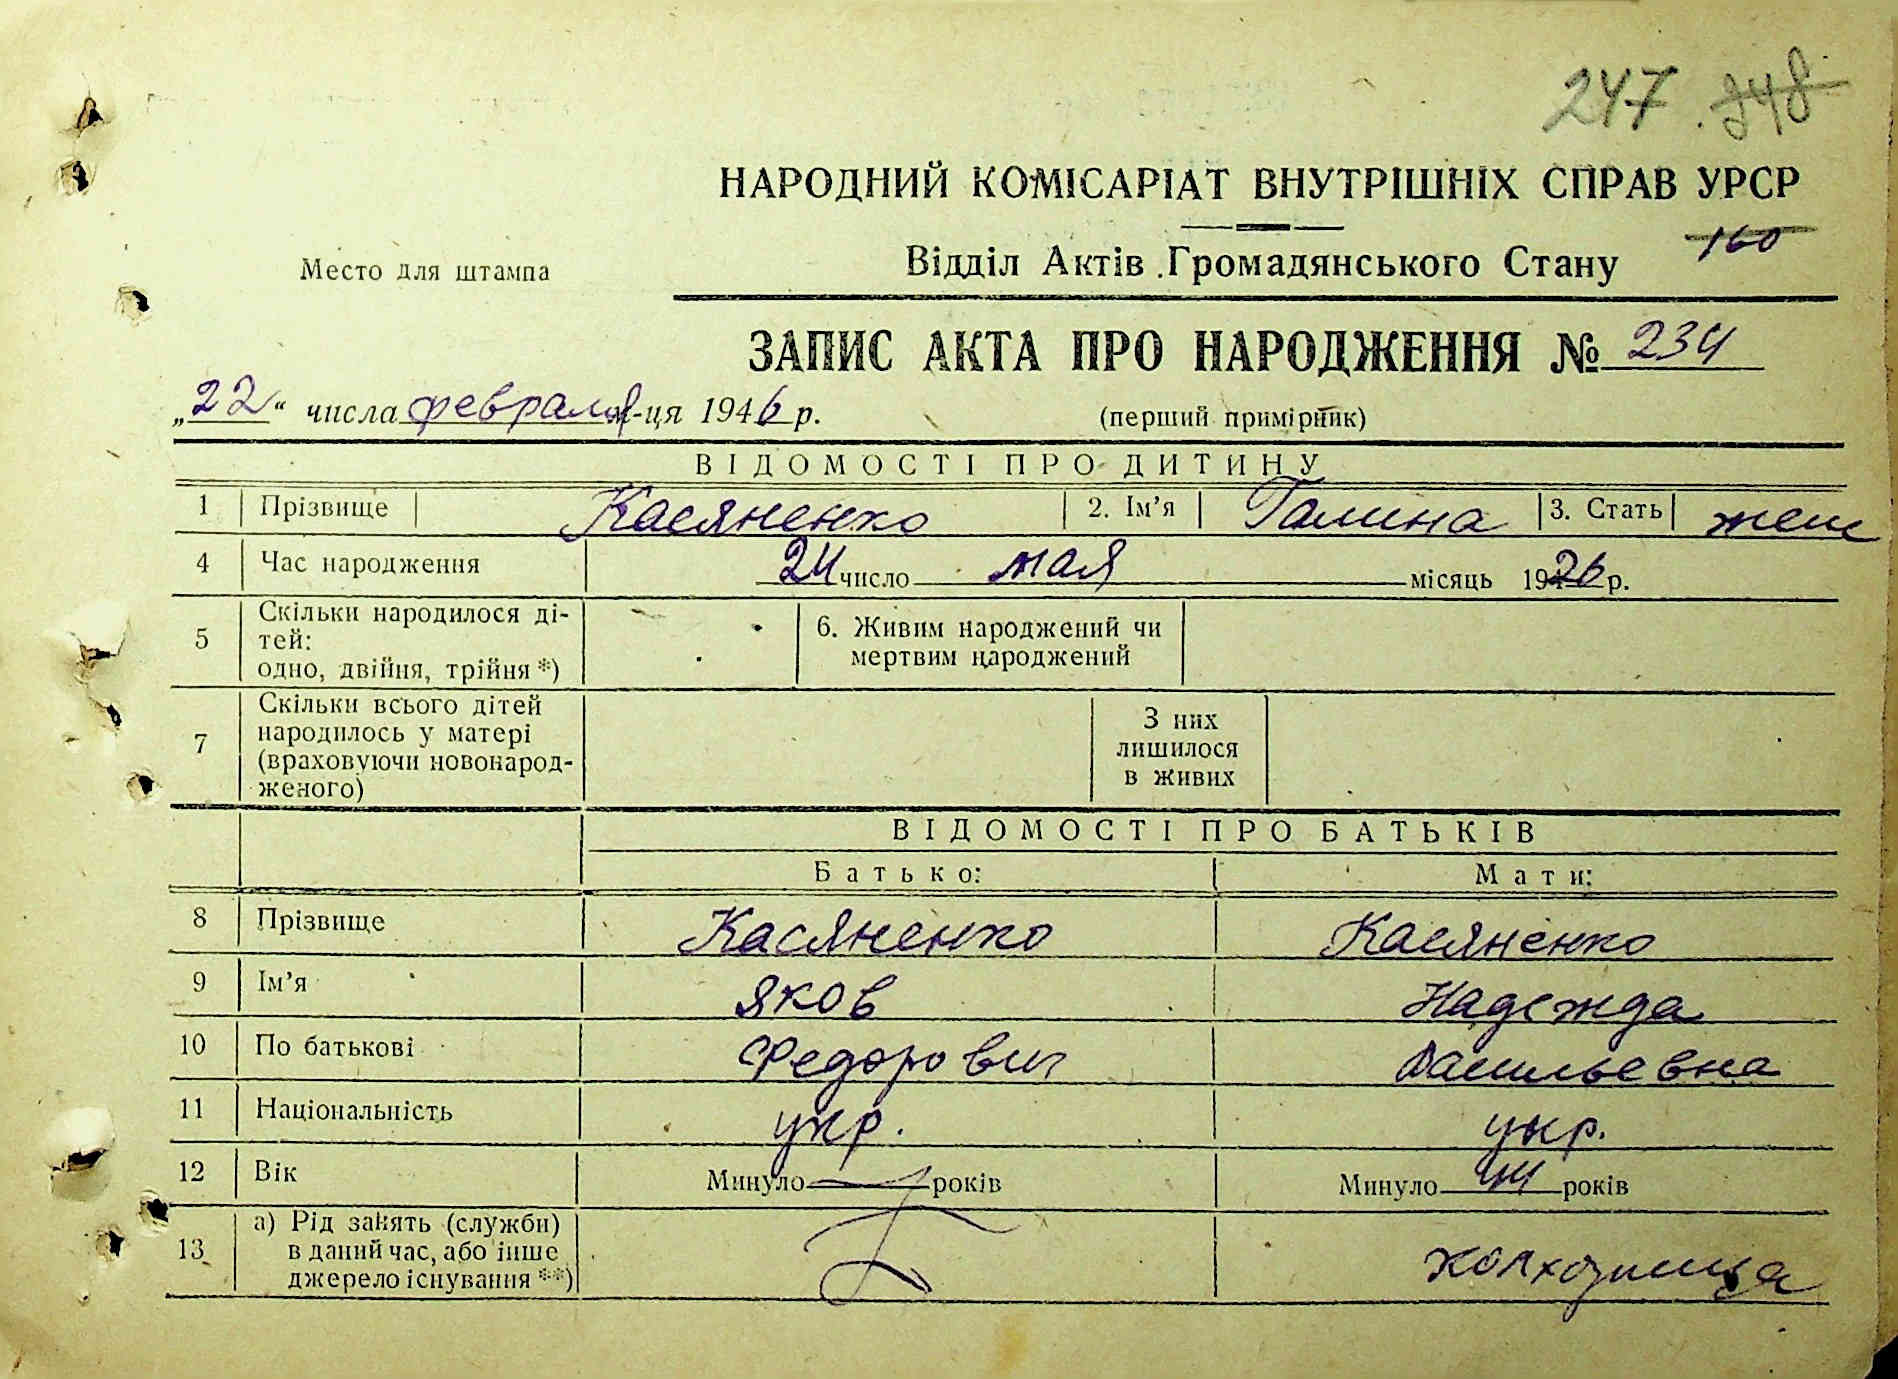 247 348
НАРОДНИЙ КОМІСАРІАТ ВНУТРІШНІХ СПРАВ УРСР
160
Место для штампа
Відділ Актів Громадянського Стану
ЗАПИС АКТА ПРО НАРОДЖЕННЯ № 234
„22“ числа февраля м-ця 1946 р. (перший примірник)
ВІДОМОСТІ ПРО ДИТИНУ
1 Прізвище Касяненко 2. Ім’я Галина 3. Стать жен
4 Час народження 24 число мая місяць 1926 р.
5 Скільки народилося ді-
тей:
одно, двійня, трійня *)
6. Живим народжений чи
мертвим народжений
7 Скільки всього дітей
народилось у матері
(враховуючи новонарод-
женого)
З них
лишилося
в живих
ВІДОМОСТІ ПРО БАТЬКІВ
Батько: Мати:
8 Прізвище Касяненко Касяненко
9 Ім’я Яков Надежда
10 По батькові Федорович Васильевна
11 Національність укр. укр.
12 Вік Минуло років Минуло 44 років
13 а) Рід занять (служби)
в даний час, або інше
джерело існування **)
колхозница